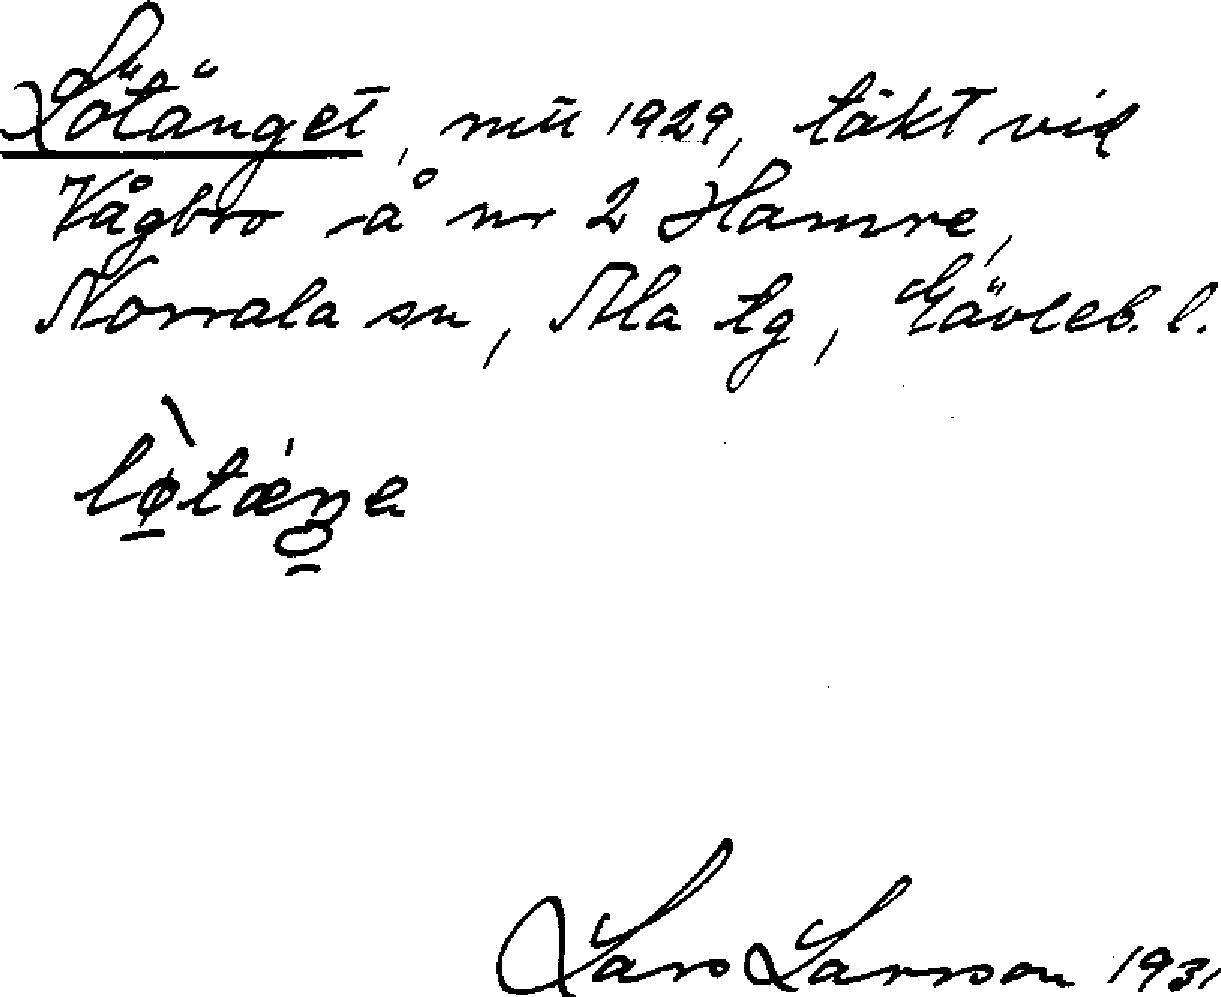 Lötänget, mü 1929, täkt vid
Vågbro å nr 2 Hamre,
Norrala sn, Ala tg, Gävleb. l.
lø̀tǽŋe
Lars Larsson 1931